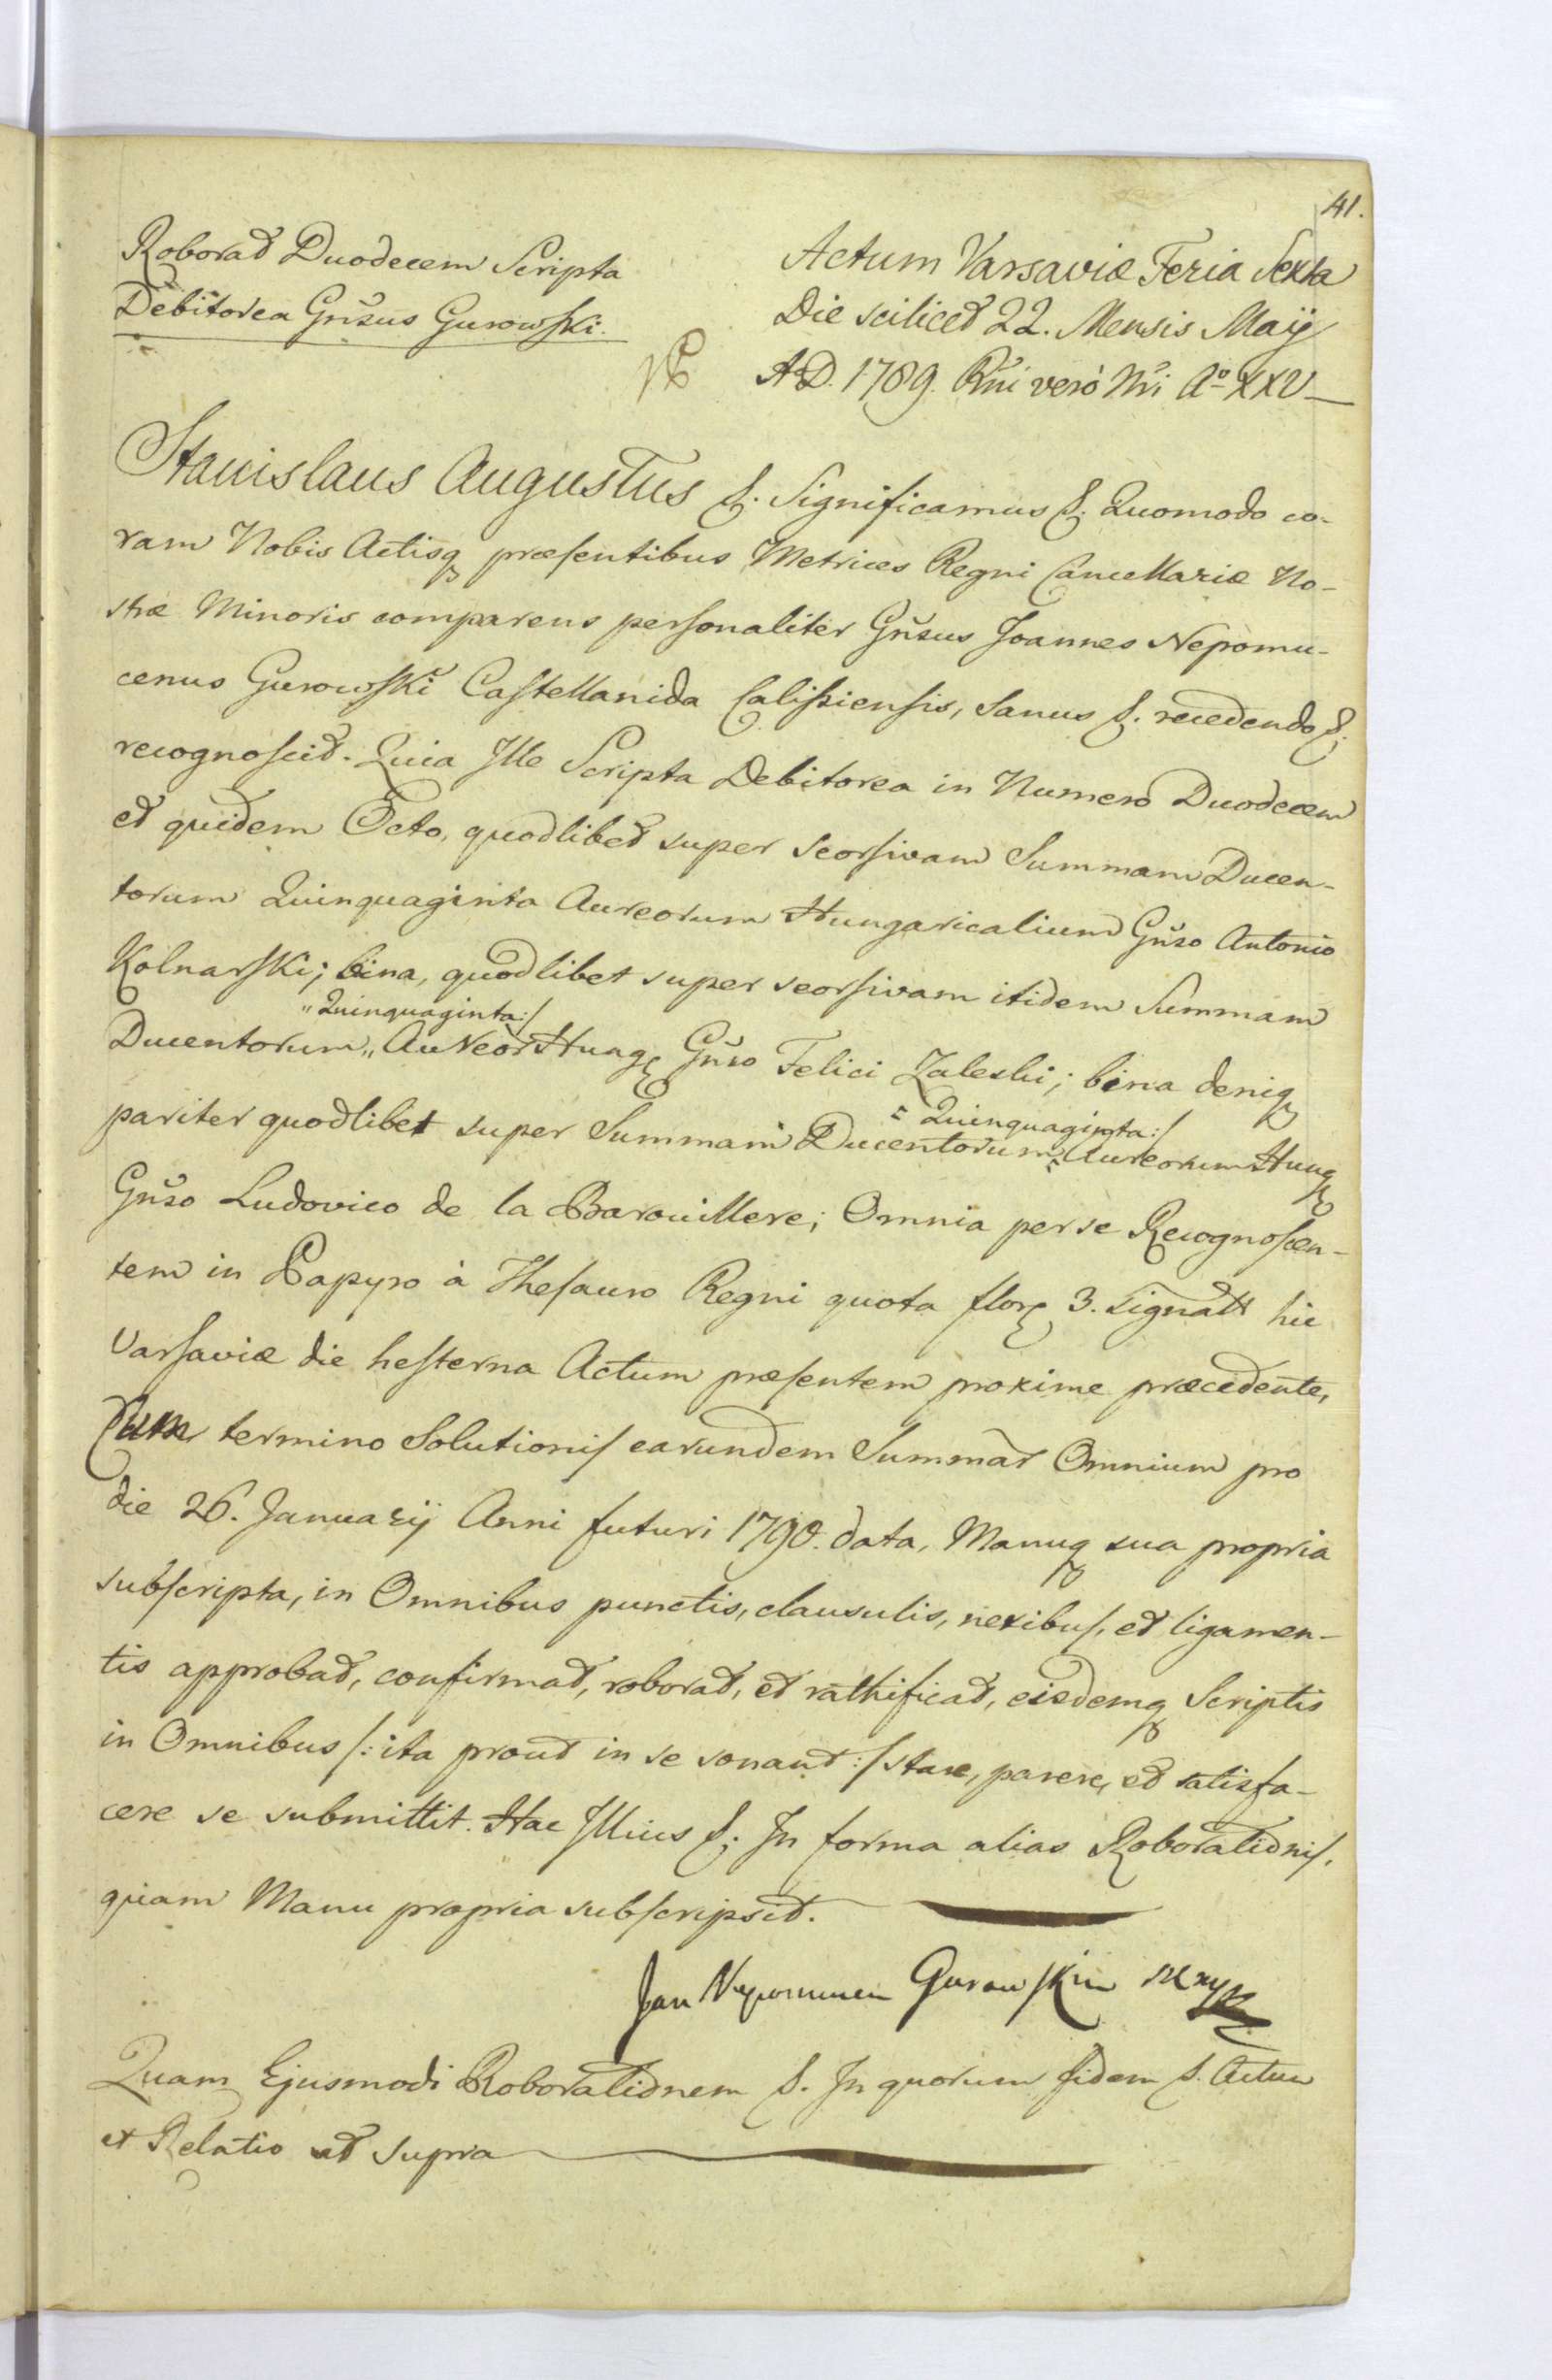 41.
Roborat Duodecem Scripta
Debitorea Gnsus Gurowski.
Actum Varsaviæ Feria Sexta
Die scilicet 22. Mensis Maÿ
A. D. 1789. Rni verò Nri Aº XXV
Stanislaus Augustus &. Significamus &. Quomodo co-
ram Nobis Actisq præsentibus Metrices Regni Cancellariæ No-
stræ Minoris comparens personaliter Gnsus Joannes Nepomu-
cenus Gurowski Castellanida Calisiensis, Sanus &. recedendo &.
recognoscit. Quia Ille Scripta Debitorea in Numero Duodecem
et quidem Octo, quodlibet super seorsivam Summam Ducen-
torum Quinquaginta Aureorum Hungaricalium Gnso Antonio
Kolnarski; bina, quodlibet super seorsivam itidem Summam
"Quinquaginta:/
Ducentorum,, Aureor Hung Gnso Felici Zaleski; bina deniq
= Quinquaginta:/
pariter quodlibet super Summam Ducentorum = Aureorum Hung
Gnso Ludovico de la Barouillere; Omnia per se Recognoscen-
tem in Papyro à Thesauro Regni quota flor 3. signatt hic
Varsaviæ die hesterna Actum præsentem proxime præcedente,
Cum termino Solutionis earundem Summar Omnium pro
die 26. Januarÿ Anni futuri 1790. data, Manuq sua propria
subscripta, in Omnibus punctis, clausulis, nexibus, et ligamen-
tis approbat, confirmat, roborat, et rathificat, eisdemq Scriptis
in Omnibus /: ita prout in se sonant :/ stare, parere, et satisfa-
cere se submittit. Hac Illius &. In forma alias Roborationis,
quam Manu propria subscripsit.
Jan Nepomucen Gurowski mp
Quam Ejusmodi Roborationem &. In quorum fidem &. Actum
et Relatio ut supra